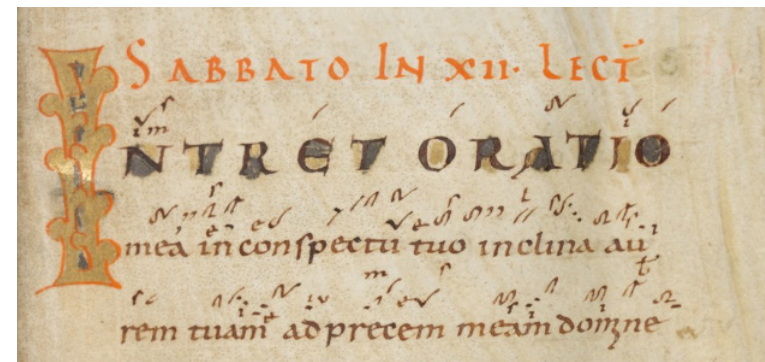 SABBATO IN XII· LECT̄
INTRET ORATIO
mea in conspectu tuo inclina au
rem tuam ad precem meam domine